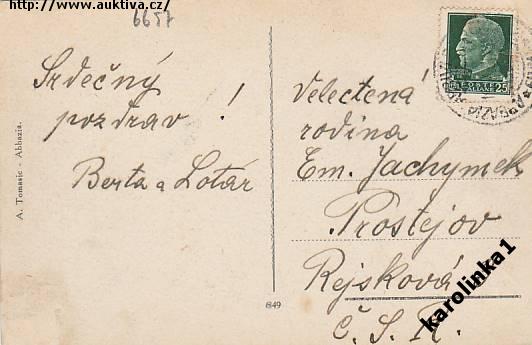 http://www.auktiva.cz/
6657
Srdečný
pozdrav !
Berta a Lotár
A. Tomasic - Abbazia.
Velectená
rodina
Em. Jachymek
Prostějov
Rejsková
Č. S. R.
849
POSTE ITALIANE
25
ABBAZIA
karolinka1